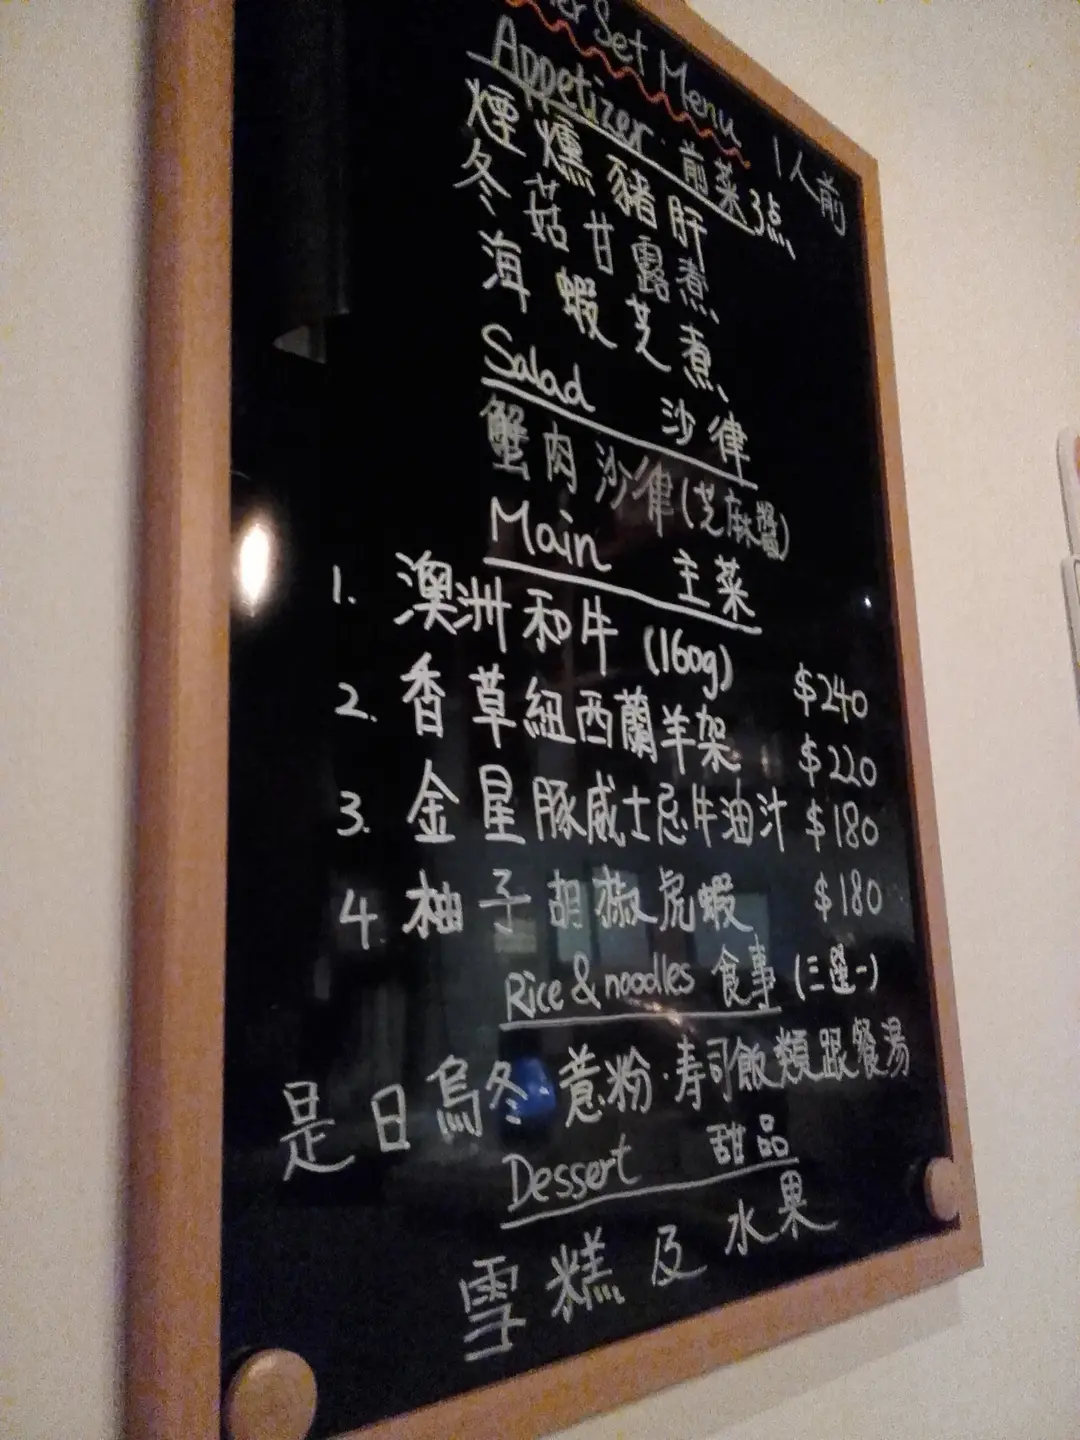 Set Menu 1人前
Appetizer 前菜3点
煙燻豬肝
冬菇甘露煮
海蝦芝煮
Salad 沙律
蟹肉沙律(芝麻醬)
Main 主菜
1. 澳洲和牛 (160g) $240
2. 香草紐西蘭羊架 $220
3. 金星豚威士忌牛油汁 $180
4 柚子胡椒虎蝦 $180
Rice & noodles 食事 (三選一)
是日烏冬·薏粉·寿司飯類跟餐湯
Dessert 甜品
雪糕及水果